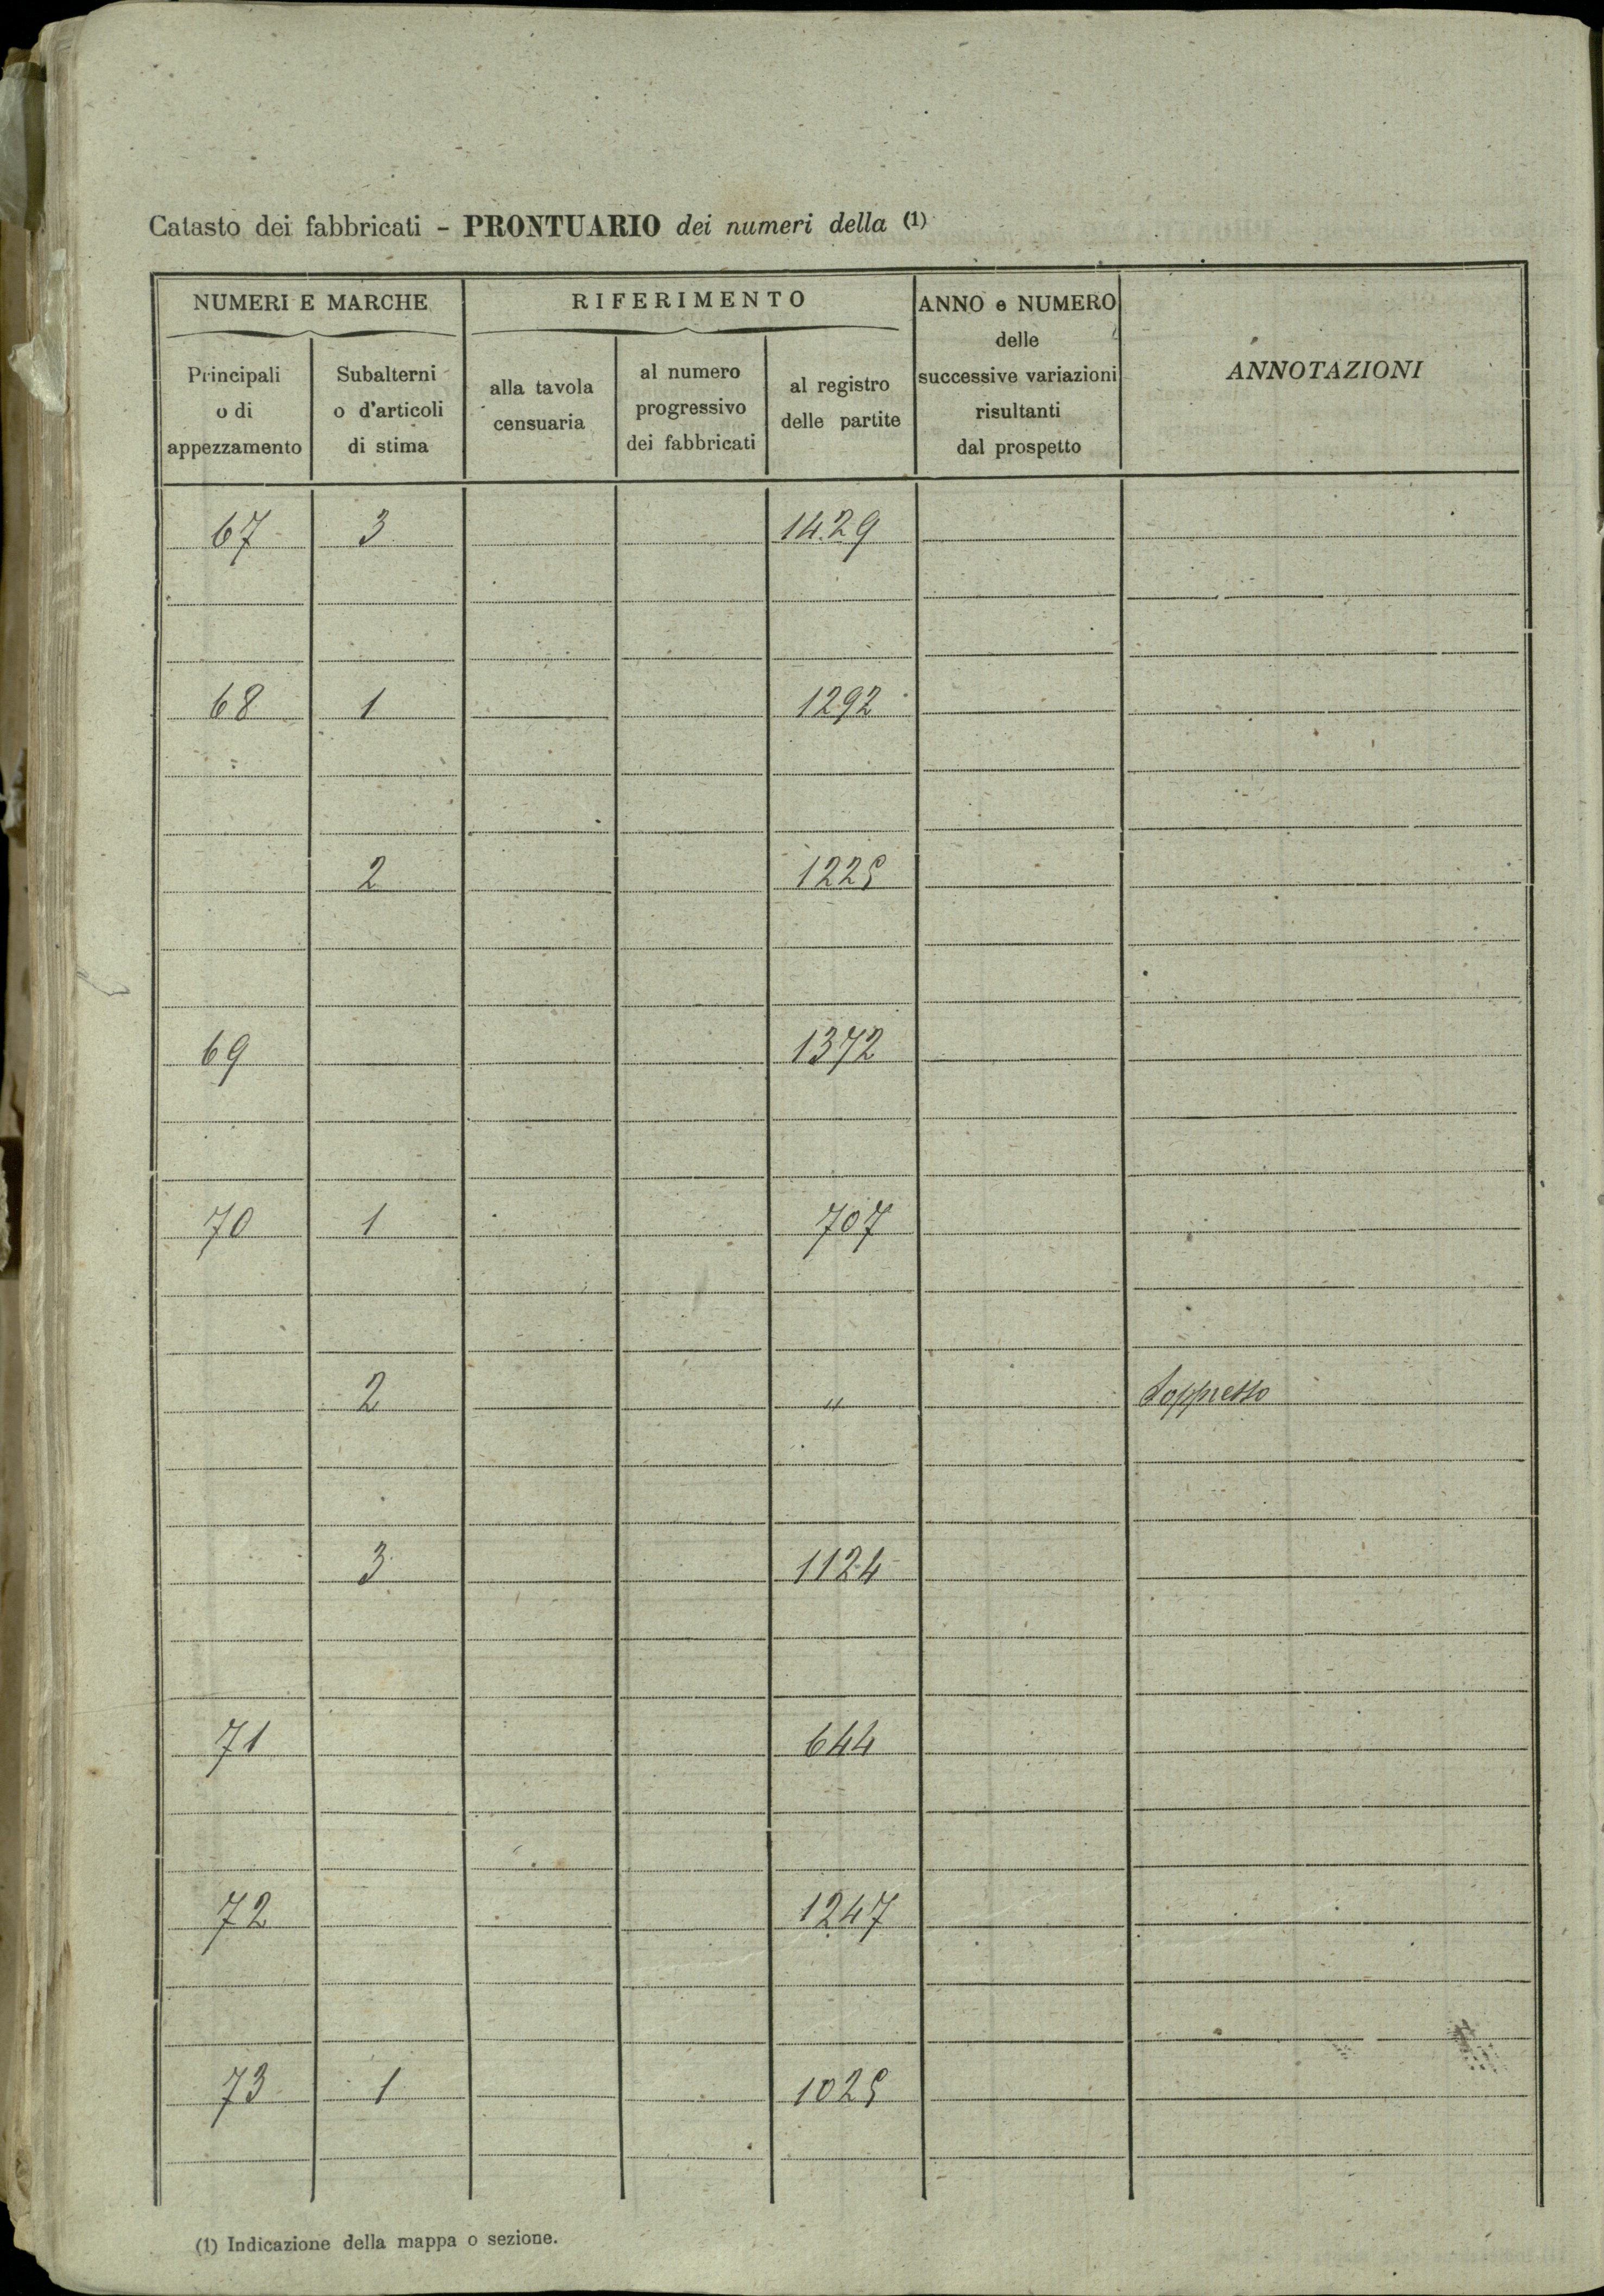 Catasto dei fabbricati - PRONTUARIO dei numeri della (1)
NUMERI E MARCHE
RIFERIMENTO
ANNO e NUMERO
delle
successive variazioni
risultanti
dal prospetto
ANNOTAZIONI
Principali
o di
appezzamento
Subalterni
o d'articoli
di stima
alla tavola
censuaria
al numero
progressivo
dei fabbricati
al registro
delle partite
67 3 1429
68 1 1292
2 1225
69 1372
70 1 707
2 " Soppresso
3 1124
71 644
72 1247
73 1 1025
(1) Indicazione della mappa o sezione.